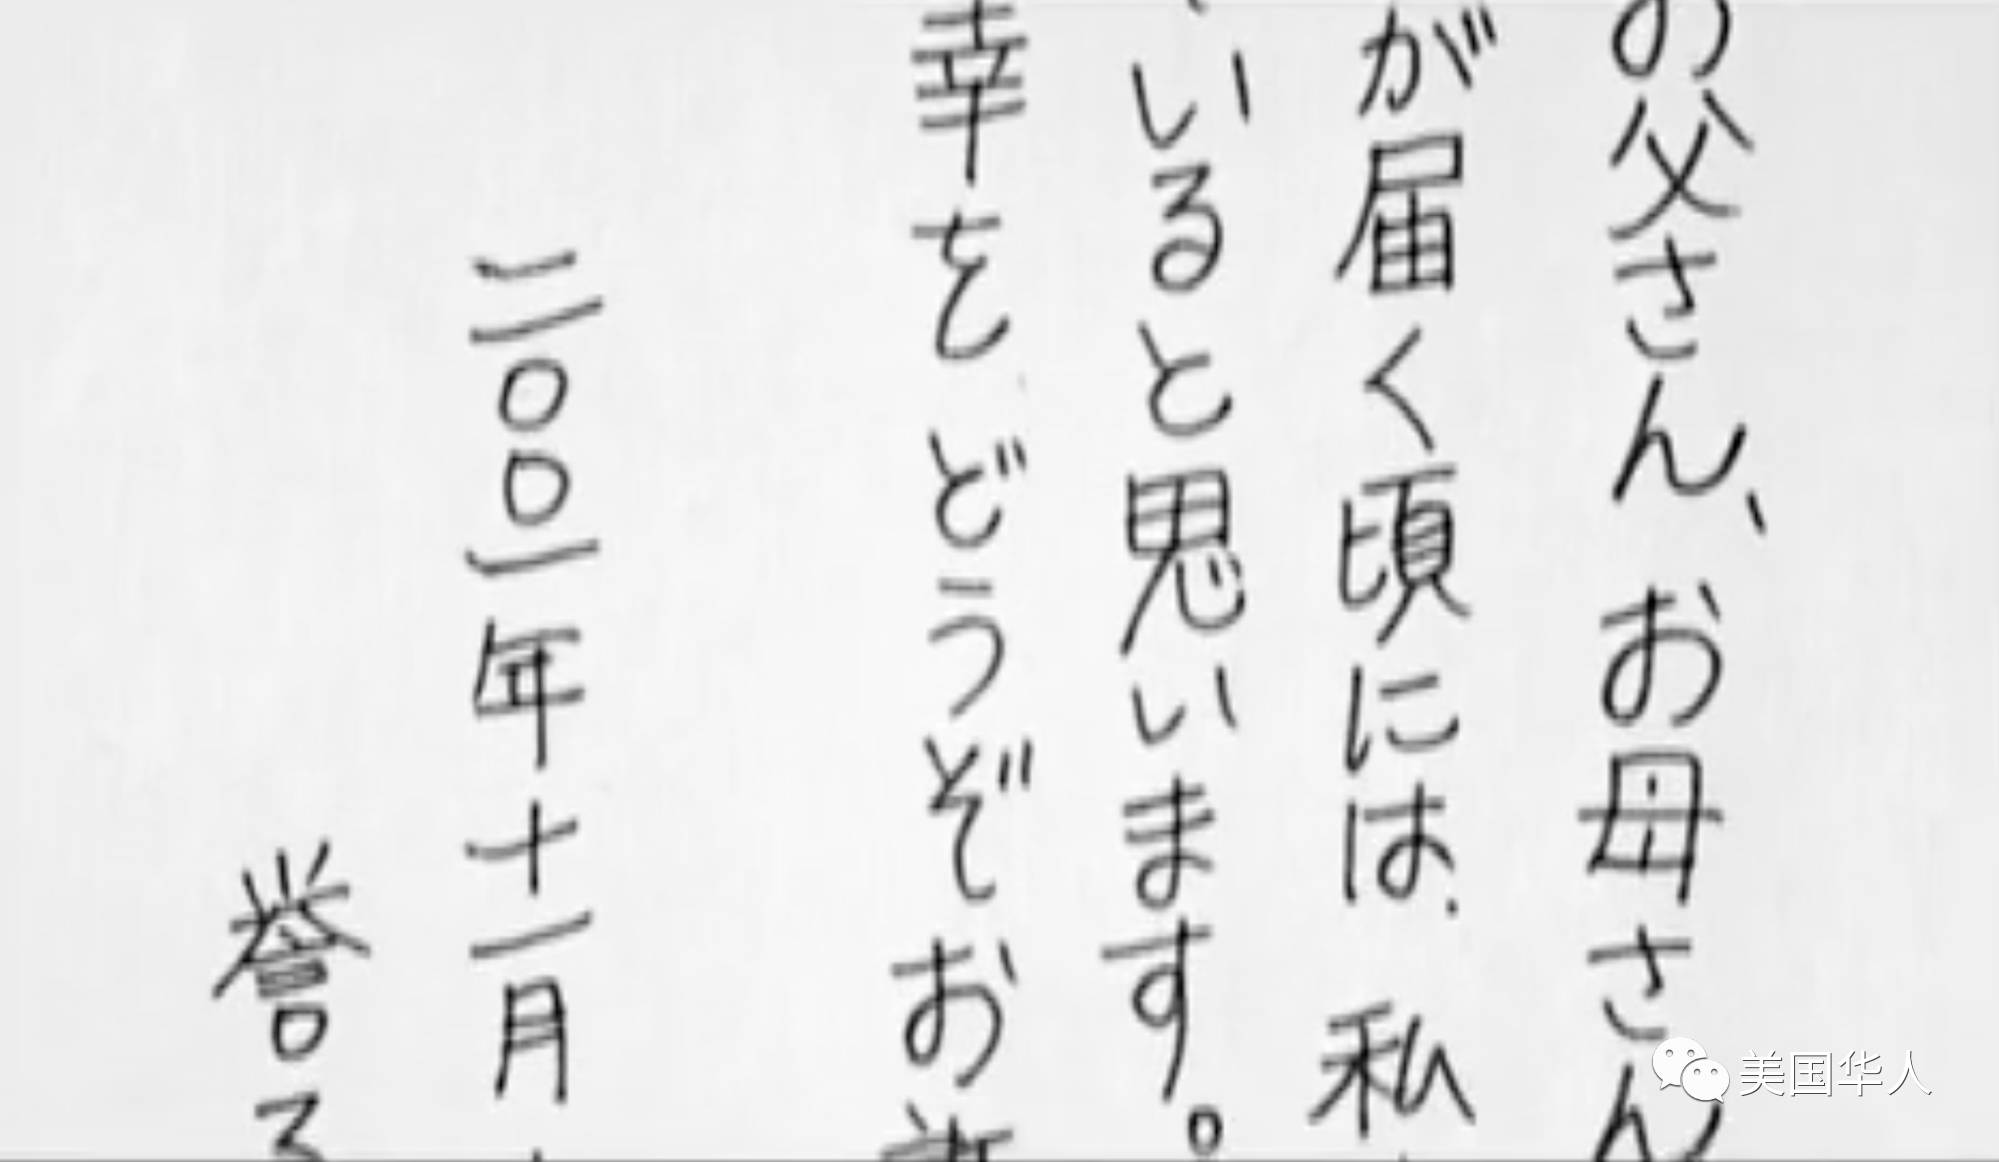 お父さん、お母さん
が届く頃には、私
いると思います。
幸をどうぞお
二〇〇一年十一月
誉る
美国华人